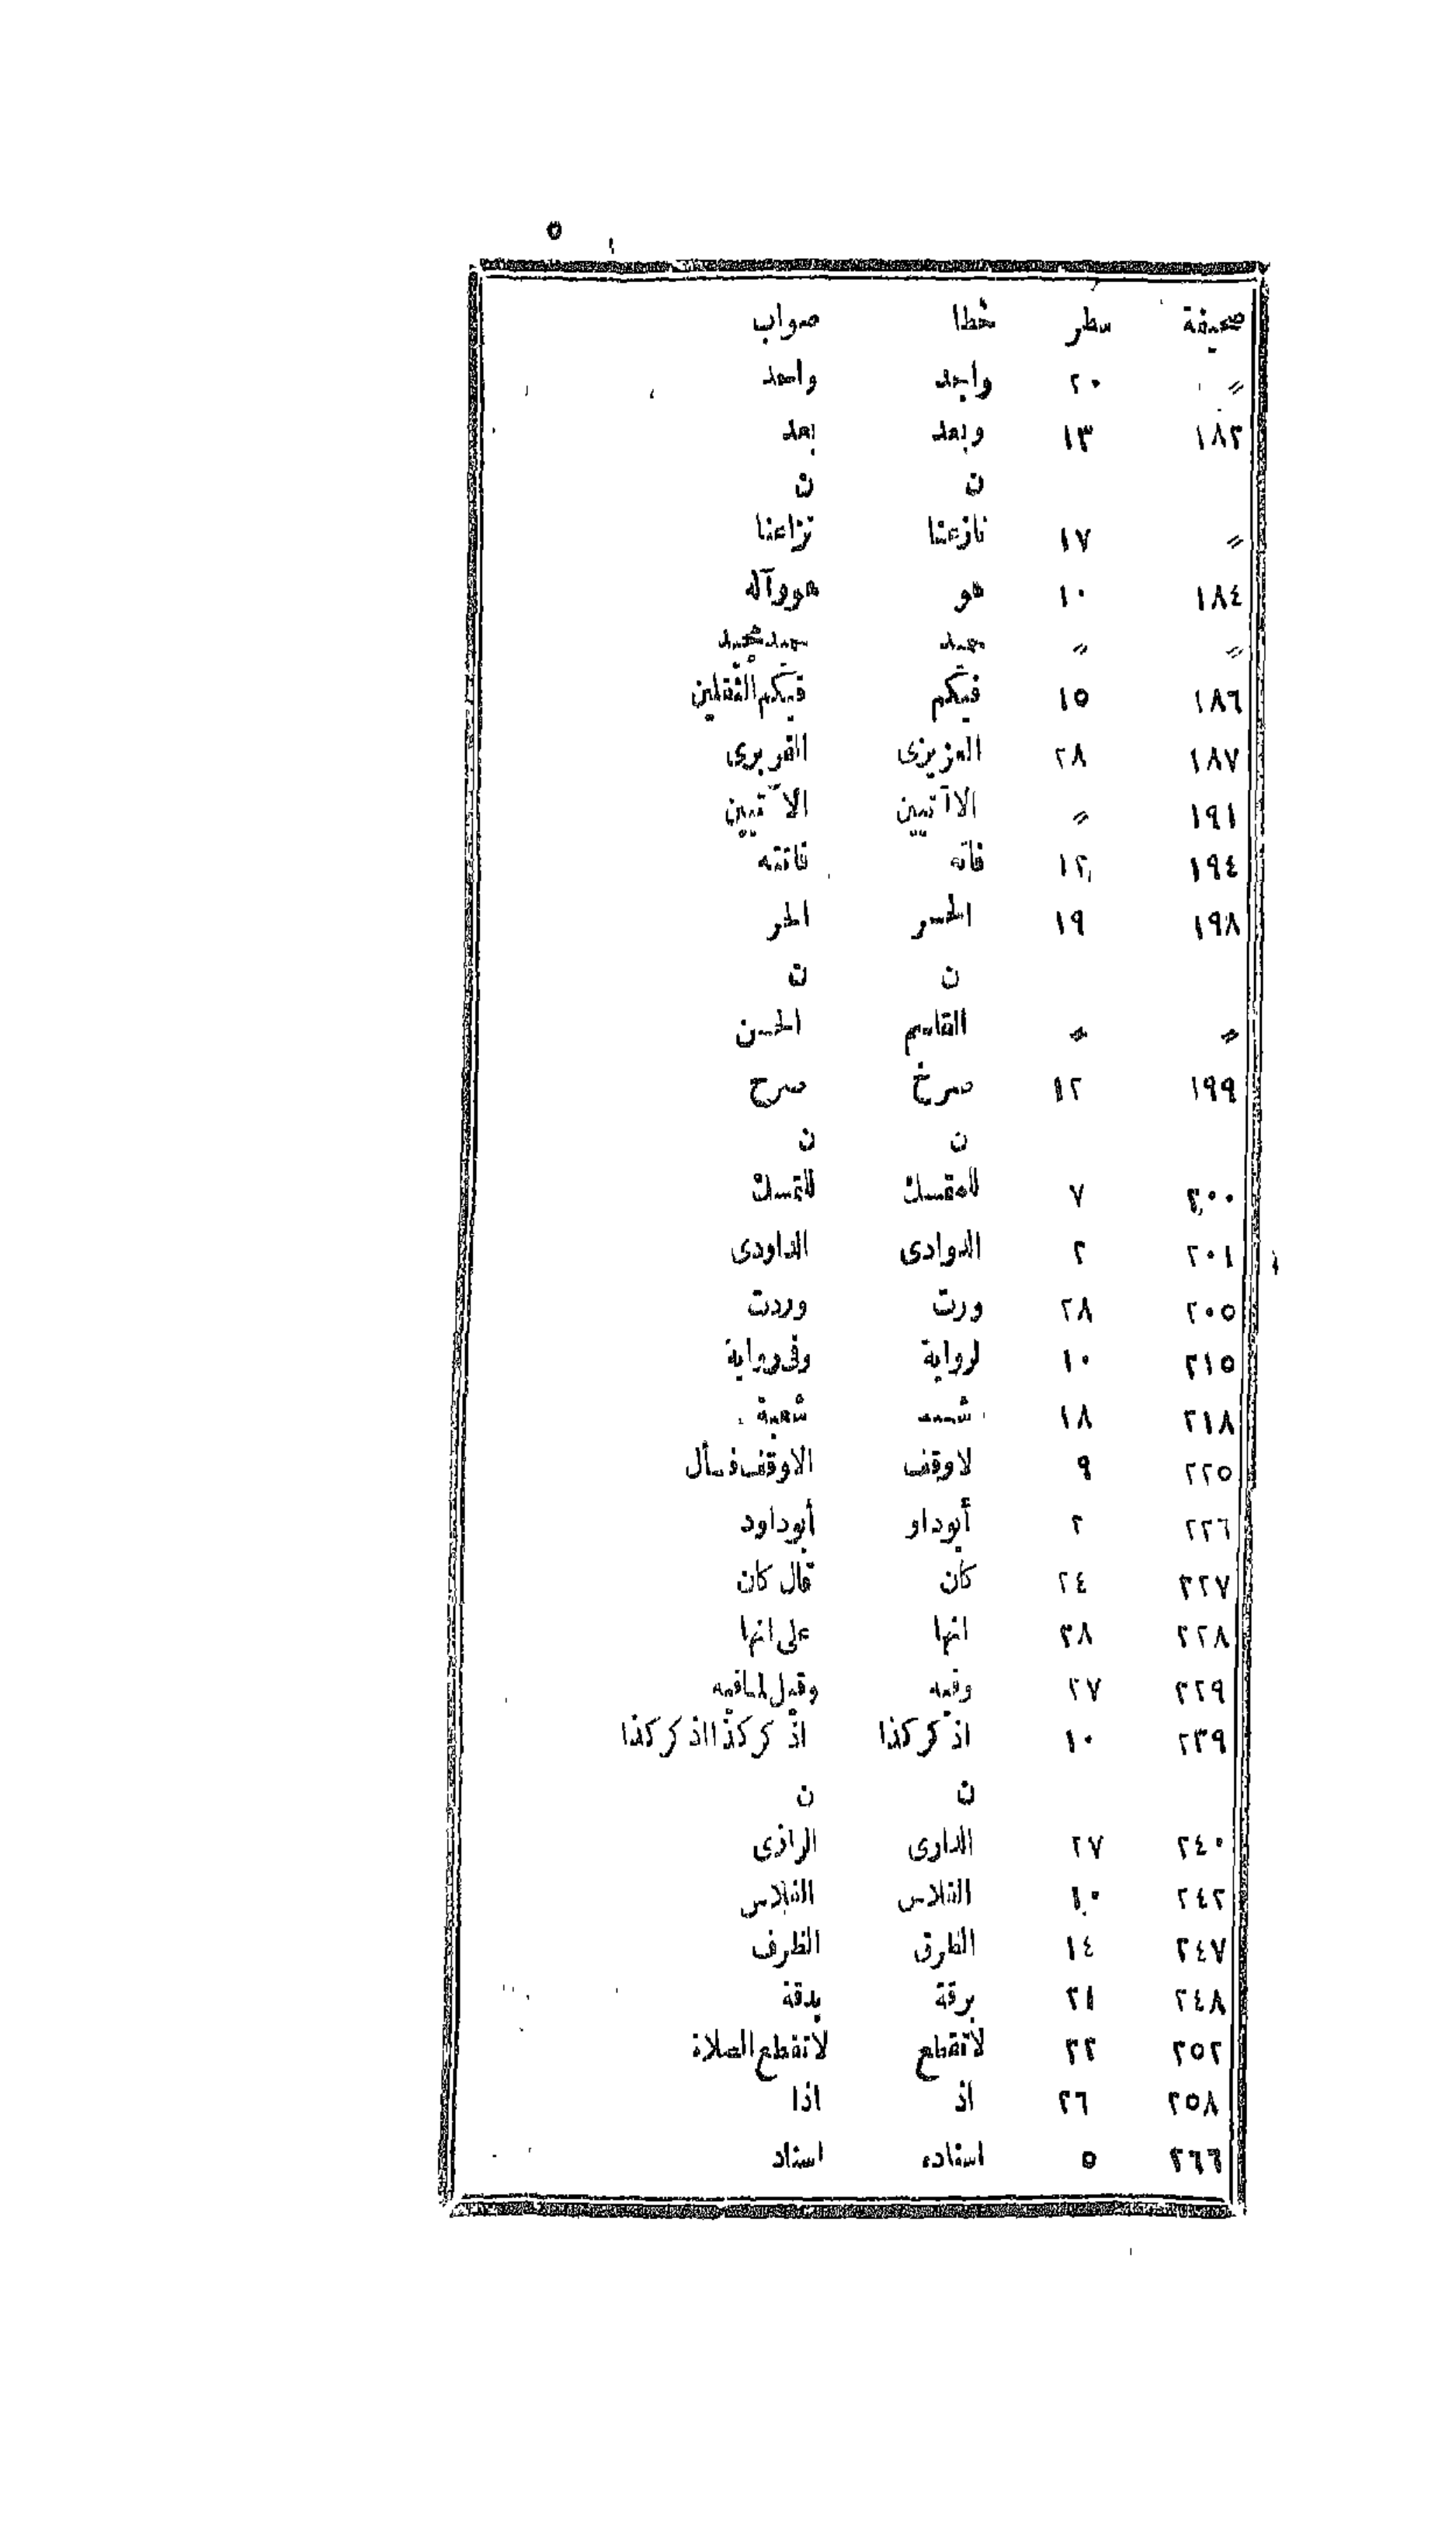 ٥
صحيفة سطر خطا صواب
〃 ٢٠ واجد واحد
١٨٢ ١٣ وبعد بعد
ن ن
〃 ١٧ نازعنا نزاعنا
١٨٤ ١٠ هو هووآله
〃 〃 حميد حميد مجيد
١٨٦ ١٥ فيكم فيكم الثقلين
١٨٧ ٢٨ العزيزى الفربرى
١٩١ 〃 الاآتيين الآتيين
١٩٤ ١٢ فاته فاتته
١٩٨ ١٩ الحسر الحر
ن ن
〃 〃 القاسم الحسن
١٩٩ ١٢ صرخ صرح
ن ن
٢٠٠ ٧ للمتمسك للتمسك
٢٠١ ٢ الدوادى الداودى
٢٠٥ ٢٨ ورت وردت
٢١٥ ١٠ لرواية وفى رواية
٢١٨ ١٨ شعبة
٢٢٥ ٩ لاوقف الاوقف فسأل
٢٢٦ ٢ أبوداو أبوداود
٢٢٧ ٢٤ كان قال كان
٢٢٨ ٢٨ انها على انها
٢٢٩ ٢٧ وفيه وقيل لما فيه
٢٣٩ ١٠ اذكر كذا اذكر كذا اذكر كذا
ن ن
٢٤٠ ٢٧ الدارى الرازى
٢٤٢ ١٠ القلاس الفلاس
٢٤٧ ١٤ الطرق الظرف
٢٤٨ ٢١ برقة بدقة
٢٥٢ ٢٢ لاتقطع لاتقطع الصلاة
٢٥٨ ٢٦ اذ اذا
٢٦٦ ٥ اسناده اسناد